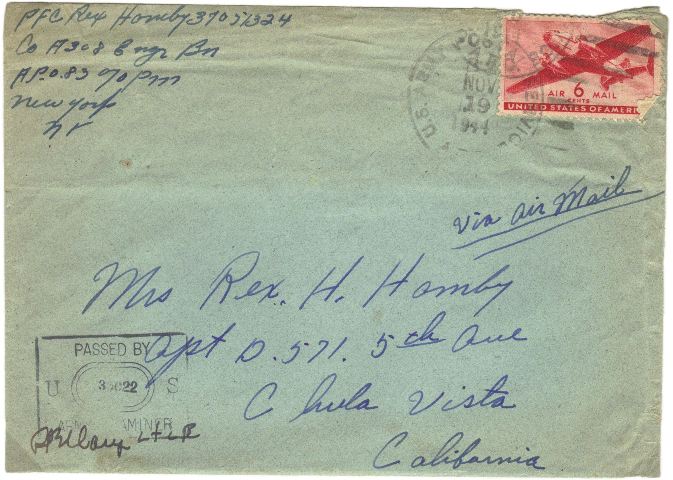 PFC Rex Homby 37051324
Co A 308 Engr Bn
A.P.O. 83 c/o P.M.
New York
NY
U.S. ARMY POSTAL SERVICE
NOV
19
1944
6
AIR MAIL
CENTS
UNITED STATES OF AMERI
Via Air Mail
Mrs Rex. H. Homby
Apt D. 571. 5th Ave
Chula Vista
California
PASSED BY
U S
22
ARMY EXAMINER